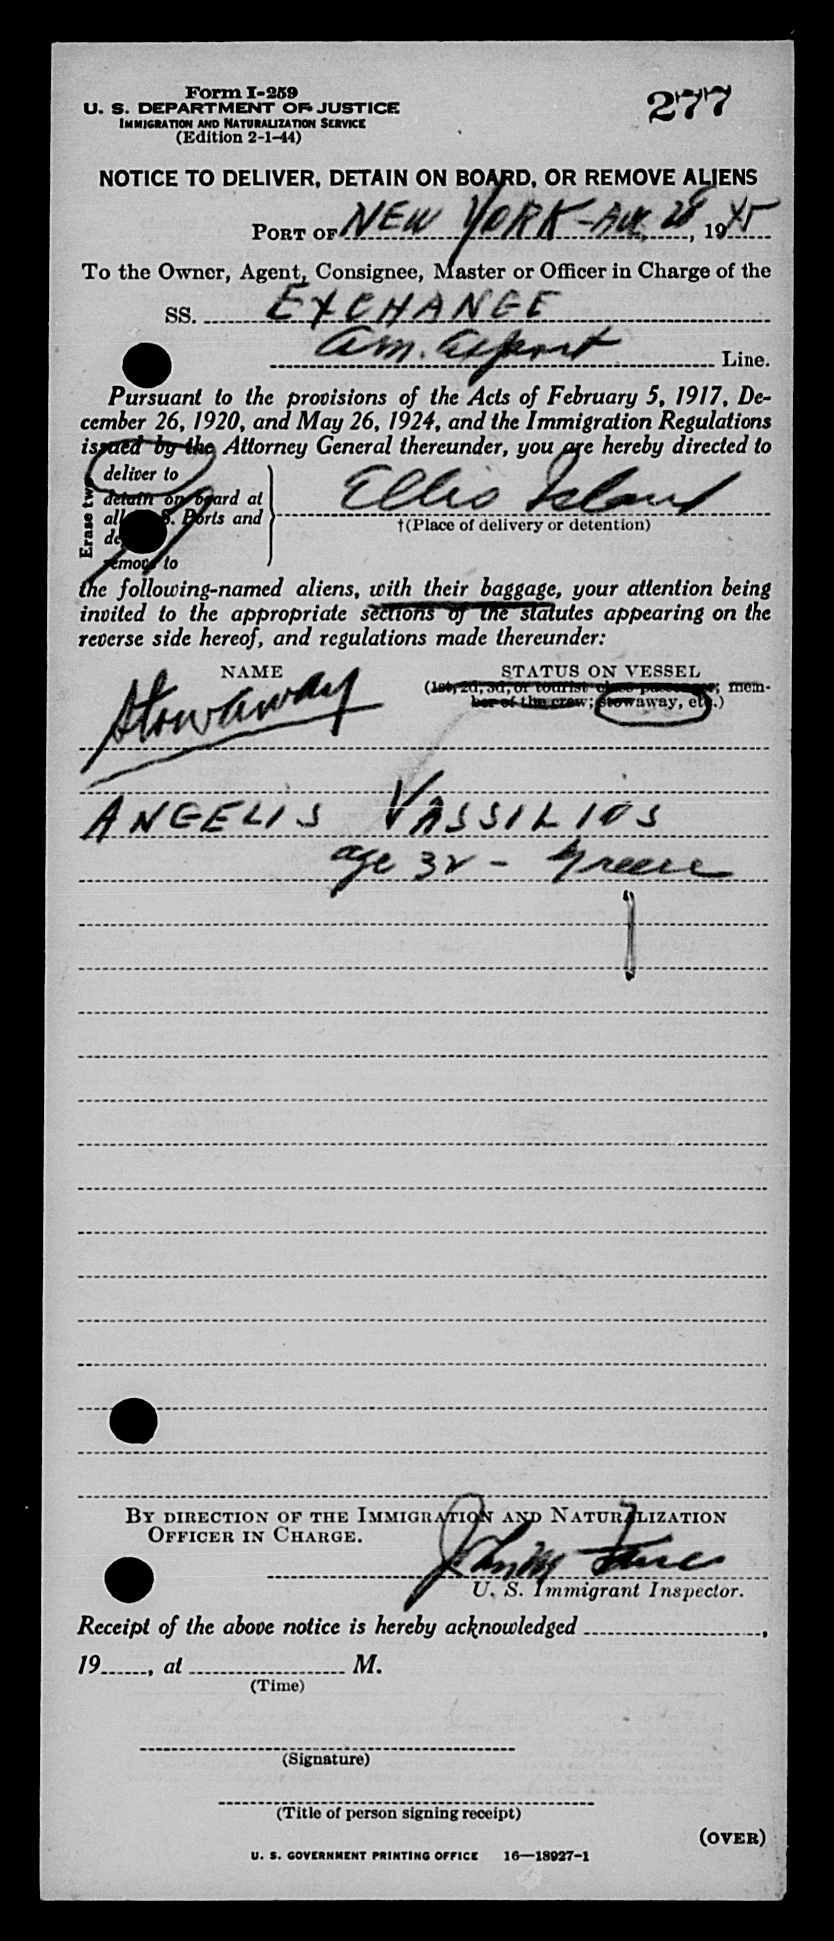 Form I-259
U. S. DEPARTMENT OF JUSTICE
IMMIGRATION AND NATURALIZATION SERVICE
(Edition 2-1-44)
277
NOTICE TO DELIVER, DETAIN ON BOARD, OR REMOVE ALIENS
PORT OF NEW YORK - AUG. 28, 1945
To the Owner, Agent, Consignee, Master or Officer in Charge of the
SS. EXCHANGE
Am. Export Line.
Pursuant to the provisions of the Acts of February 5, 1917, De-
cember 26, 1920, and May 26, 1924, and the Immigration Regulations
issued by the Attorney General thereunder, you are hereby directed to
Erase two
deliver to
detain on board at
all S. Ports and
remove to
Ellis Island
†(Place of delivery or detention)
the following-named aliens, with their baggage, your attention being
invited to the appropriate sections of the statutes appearing on the
reverse side hereof, and regulations made thereunder:
NAME
STATUS ON VESSEL
(1st, 2d, 3d, or tourist class passenger; mem-
ber of the crew; stowaway, etc.)
Stowaway
ANGELIS VASSILIOS
age 32 - Greece
BY DIRECTION OF THE IMMIGRATION AND NATURALIZATION
OFFICER IN CHARGE.
U. S. Immigrant Inspector.
Receipt of the above notice is hereby acknowledged ,
19 , at M.
(Time)
(Signature)
(Title of person signing receipt)
(OVER)
U. S. GOVERNMENT PRINTING OFFICE 16—18927-1